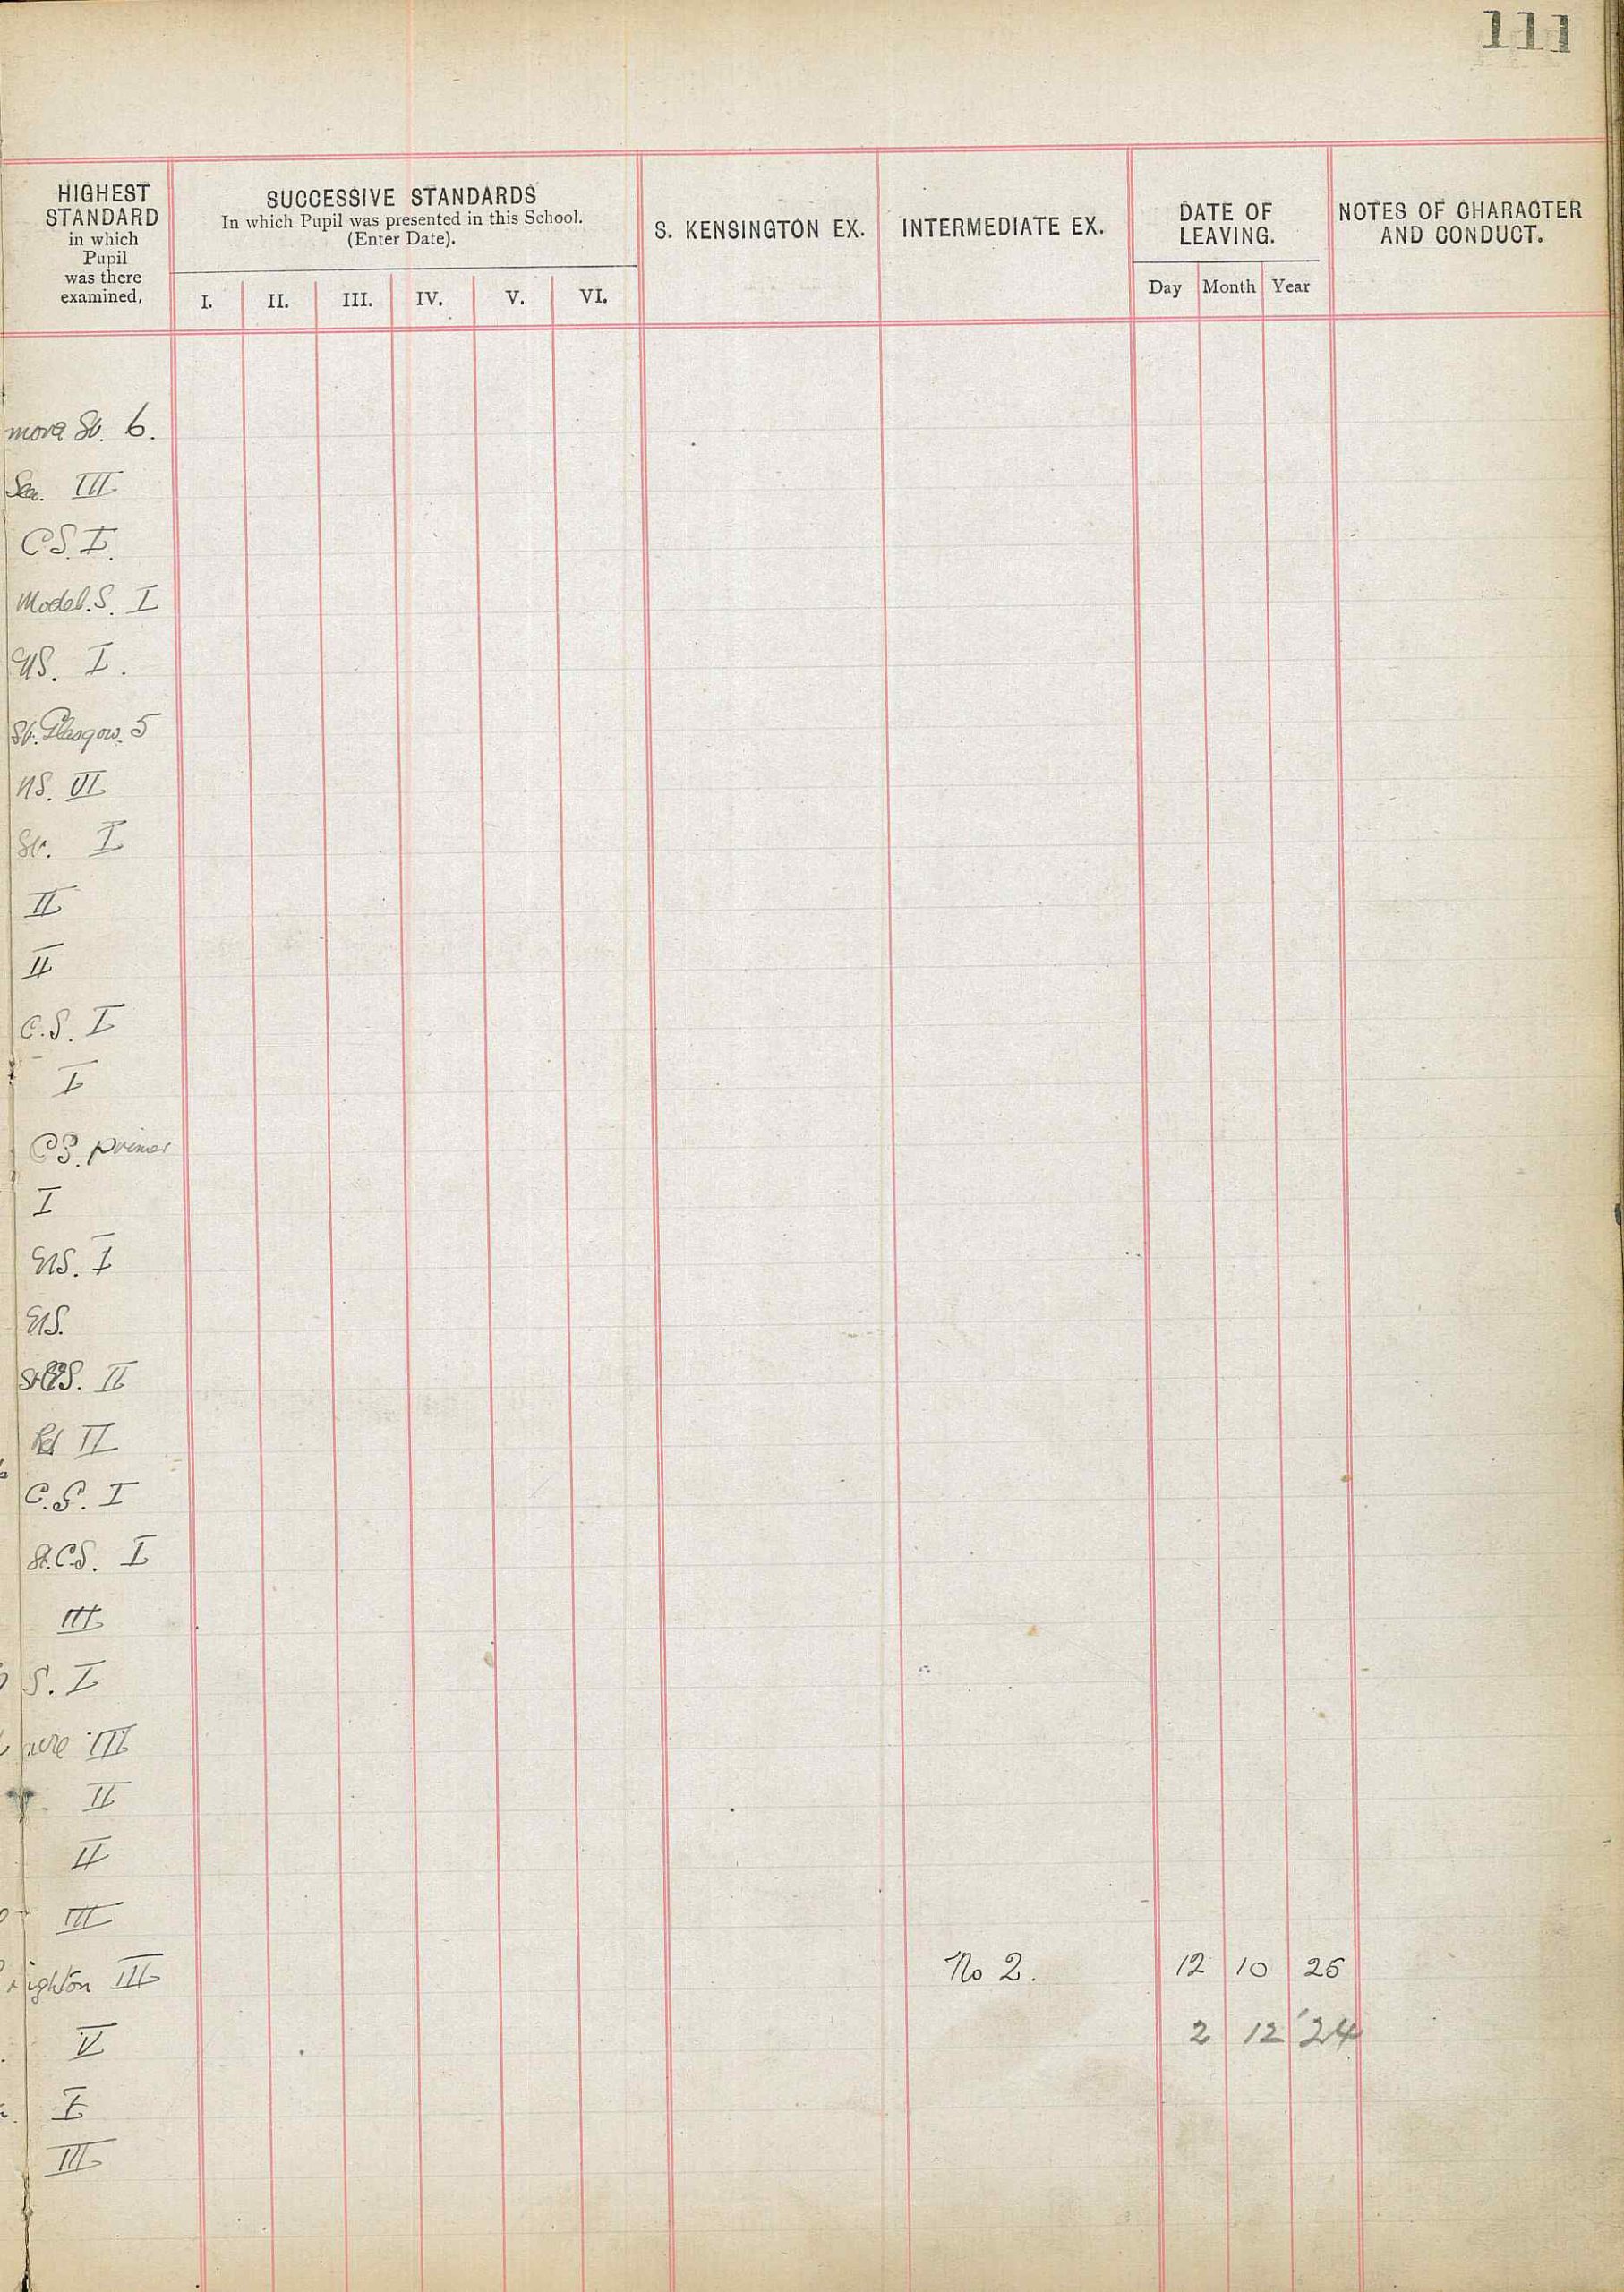 111
HIGHEST STANDARD in which Pupil was there examined,
SUCCESSIVE STANDARDS
In which Pupil was presented in this School.
(Enter Date).
I. II. III. IV. V. VI.
S. KENSINGTON EX.
INTERMEDIATE EX.
DATE OF LEAVING.
Day Month Year
NOTES OF CHARACTER AND CONDUCT.
6.
III
C.S. I.
Model. S. I
I.
St. Glasgow. 5
NS. VI
I
II
II
C.S. I
I
CS. primer
I
I
II
II
C.S. I
St. C.S. I
III
S. I
III
II
II
III
ighton III No 2. 12 10 25
V 2 12 '24
I
III